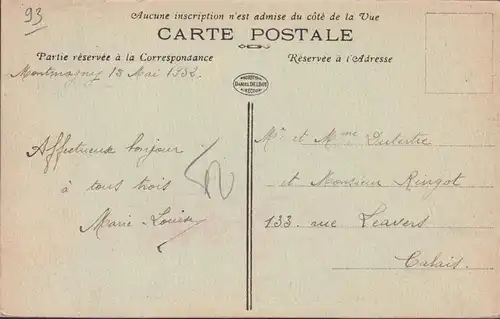 93
Aucune inscription n'est admise du côté de la Vue
CARTE POSTALE
Partie réservée à la Correspondance
Réservée à l'Adresse
Montmagny 18 Mai 1932.
DANIEL DELBOY
MIRECOURT
Affectueux bonjour
à tous trois
Marie-Louise
Mr et Mme Dutertre
et Monsieur Ringot
133 rue Leavers
Calais.